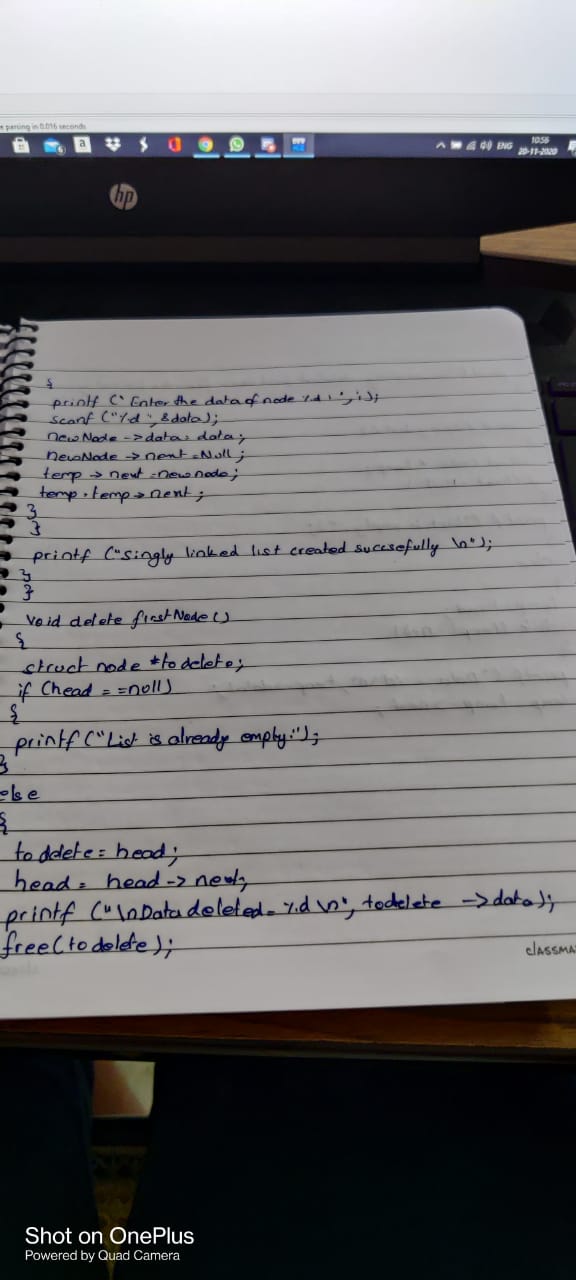 e parsing in 0.016 seconds
a
ENG
10:56
20-11-2020
hp
{
printf (" Enter the data of node %d : ", i);
scanf ("%d", &data);
newNode -> data = data;
newNode -> next = Null;
temp -> next = newnode;
temp = temp -> next ;
}
}
printf ("singly linked list created succsefully \n");
}
}
void delete firstNode ()
{
struct node *to delete;
if (head = =null)
{
printf ("List is already empty.");
}
else
{
to delete = head;
head = head -> next;
printf ("\nData deleted = %d \n", todelete -> data);
free(to delete);
CLASSMA
Shot on OnePlus
Powered by Quad Camera